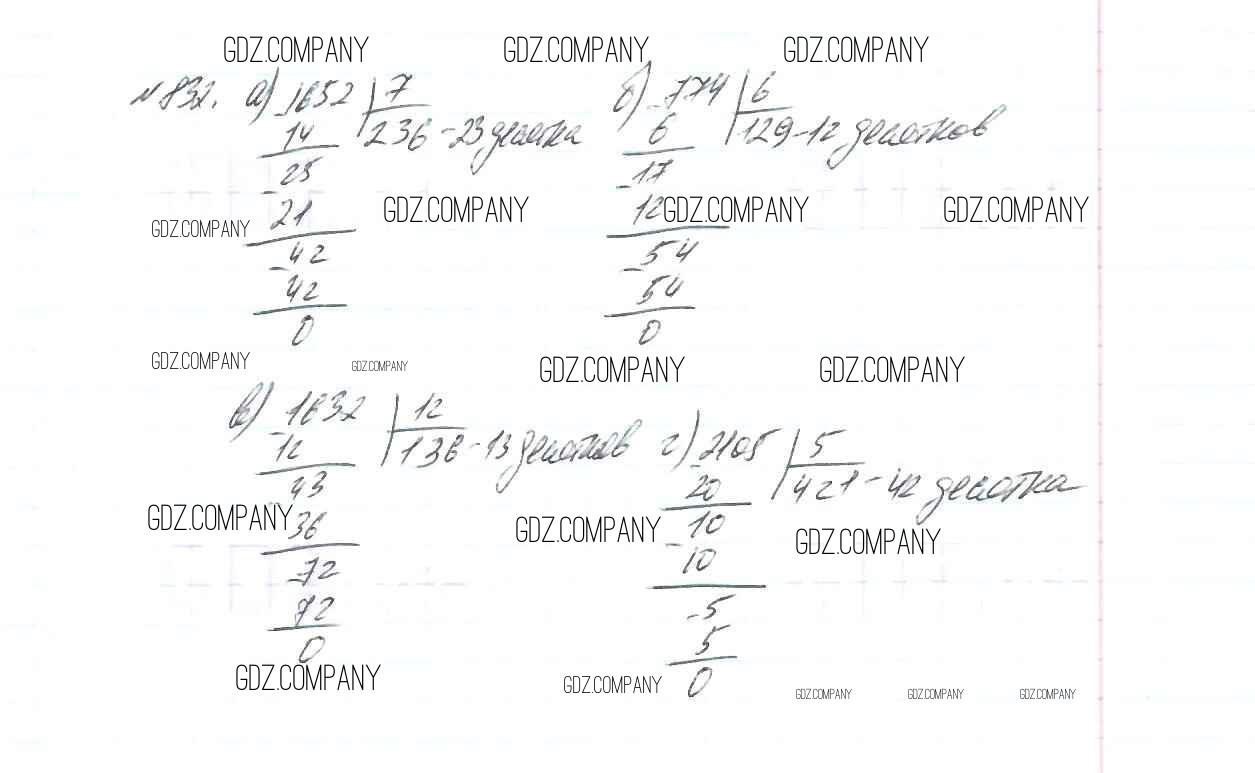 GDZ.COMPANY GDZ.COMPANY GDZ.COMPANY
№832. а) 1652 | 7 б) 774 | 6
14 236 - 23 десятка 6 129 - 12 десятков
25 17
21 12
GDZ.COMPANY GDZ.COMPANY GDZ.COMPANY GDZ.COMPANY
42 54
42 54
0 0
GDZ.COMPANY GDZ.COMPANY GDZ.COMPANY GDZ.COMPANY
в) 1632 | 12 г) 2105 | 5
12 136 - 13 десятков 20 421 - 42 десятка
43 10
36 10
GDZ.COMPANY GDZ.COMPANY GDZ.COMPANY
72 5
72 5
0 0
GDZ.COMPANY GDZ.COMPANY GDZ.COMPANY GDZ.COMPANY GDZ.COMPANY